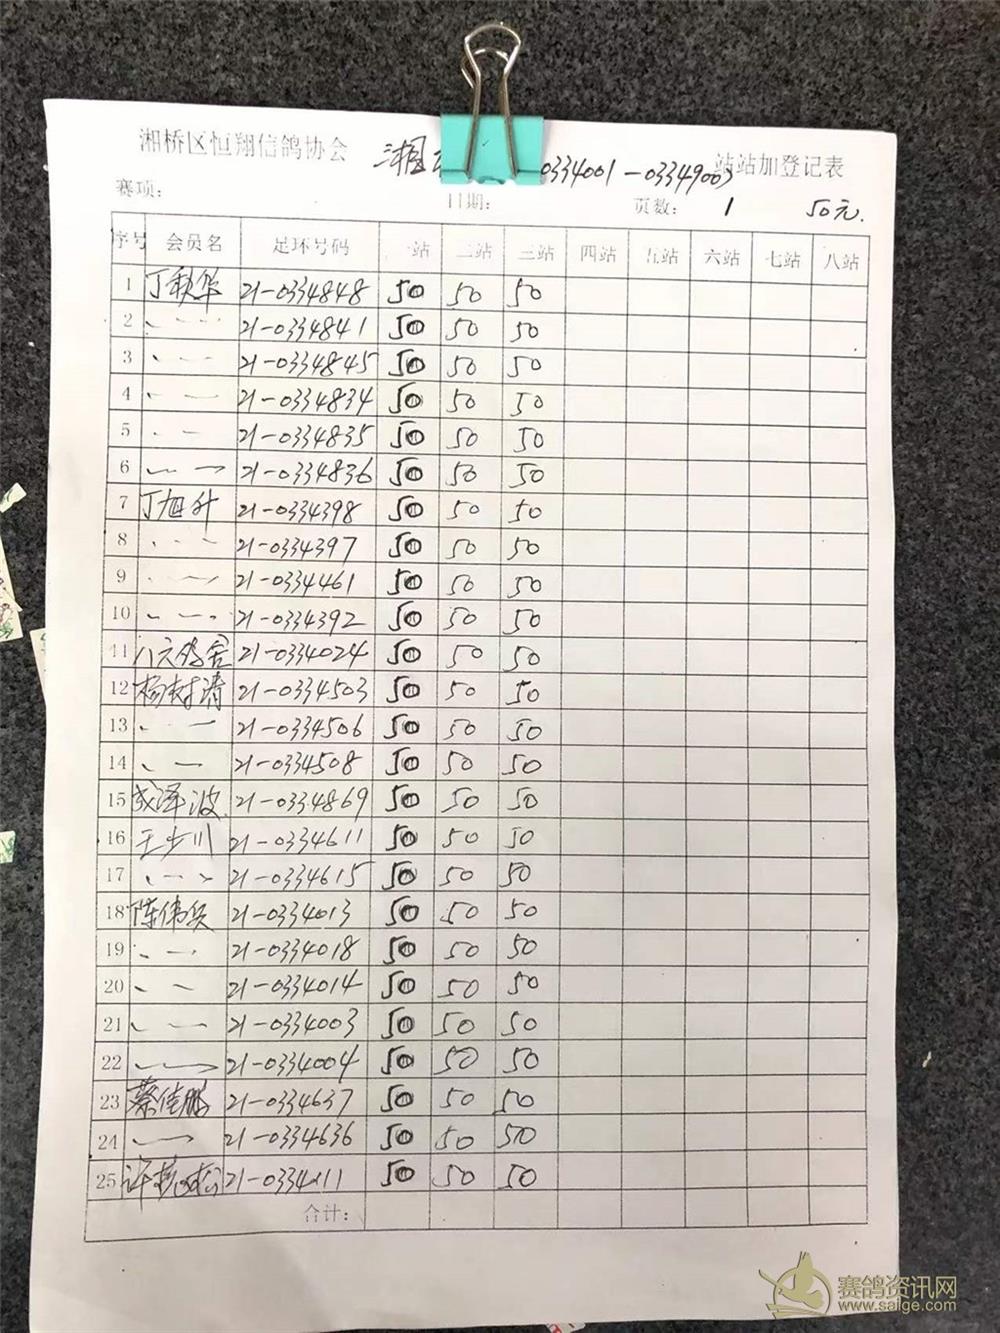 湘桥区恒翔信鸽协会 0334001-0334900 站站加登记表
赛项: 日期: 页数: 1 50元.
序号 会员名 足环号码 一站 二站 三站 四站 五站 六站 七站 八站
1 丁秋华 21-0334848 50 50 50
2 21-0334841 50 50 50
3 21-0334845 50 50 50
4 21-0334834 50 50 50
5 21-0334835 50 50 50
6 21-0334836 50 50 50
7 丁旭升 21-0334398 50 50 50
8 21-0334397 50 50 50
9 21-0334461 50 50 50
10 21-0334392 50 50 50
11 八六鸽舍 21-0334024 50 50 50
12 杨树清 21-0334503 50 50 50
13 21-0334506 50 50 50
14 21-0334508 50 50 50
15 成泽波 21-0334869 50 50 50
16 王步川 21-0334611 50 50 50
17 21-0334615 50 50 50
18 陈伟兵 21-0334013 50 50 50
19 21-0334018 50 50 50
20 21-0334014 50 50 50
21 21-0334003 50 50 50
22 21-0334004 50 50 50
23 蔡佳鹏 21-0334637 50 50 50
24 21-0334636 50 50 50
25 许 50 50 50
合计:
赛鸽资讯网
www.saige.com